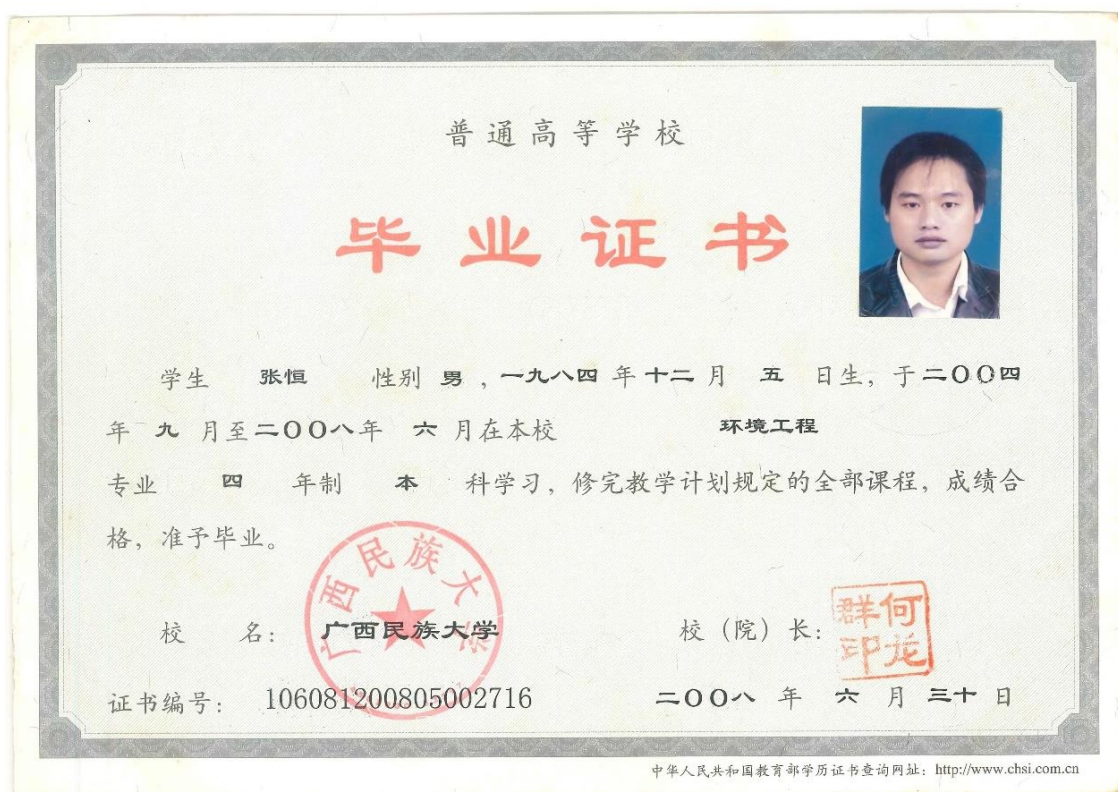 普通高等学校
毕业证书
学生 张恒 性别 男 ，一九八四 年 十二 月 五 日生，于 二〇〇四
年 九 月至 二〇〇八 年 六 月在本校 环境工程
专业 四 年制 本 科学习，修完教学计划规定的全部课程，成绩合
格，准予毕业。
广西民族大学
校 名： 广西民族大学 校（院）长： 何龙群印
证书编号： 106081200805002716 二〇〇八 年 六 月 三十 日
中华人民共和国教育部学历证书查询网址：http://www.chsi.com.cn